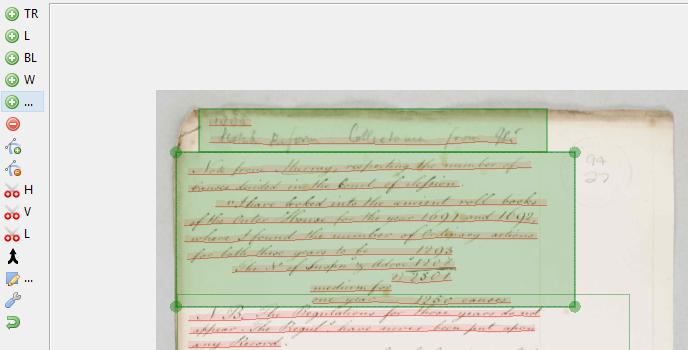 TR
L
BL
W
...
H
V
L
...
Scotch Reform Collectanea from
94
27
Note from Murray, respecting the number of
causes decided in the Court of Session.
"I have looked into the ancient roll books
of the Outer House for the year 1691 and 1692,
where I found the number of Ordinary actions
for both these years to be 1293
The No of Suspns & Advocns 1208
2) 2501
medium for
one year 1250 causes
N. B. The Regulations for those years do not
appear. The Regulns have never been put upon
any Record.